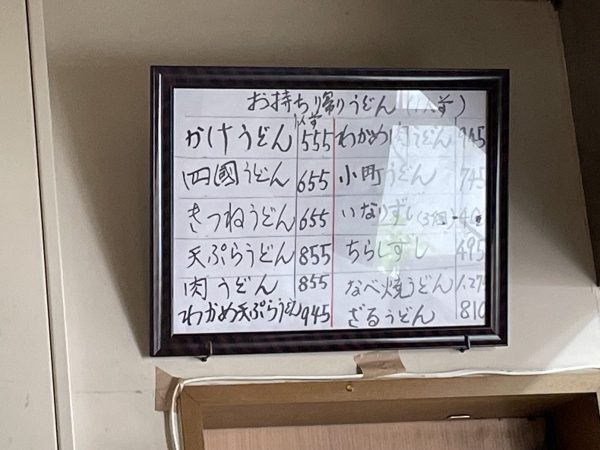 お持ち帰りうどん（1人前）
1人前
かけうどん 555
四國うどん 655
きつねうどん 655
天ぷらうどん 855
肉うどん 855
わかめ天ぷらうどん 945
わかめ肉うどん 945
小町うどん 745
いなりずし(3個)
ちらしずし 495
なべ焼うどん
ざるうどん 810